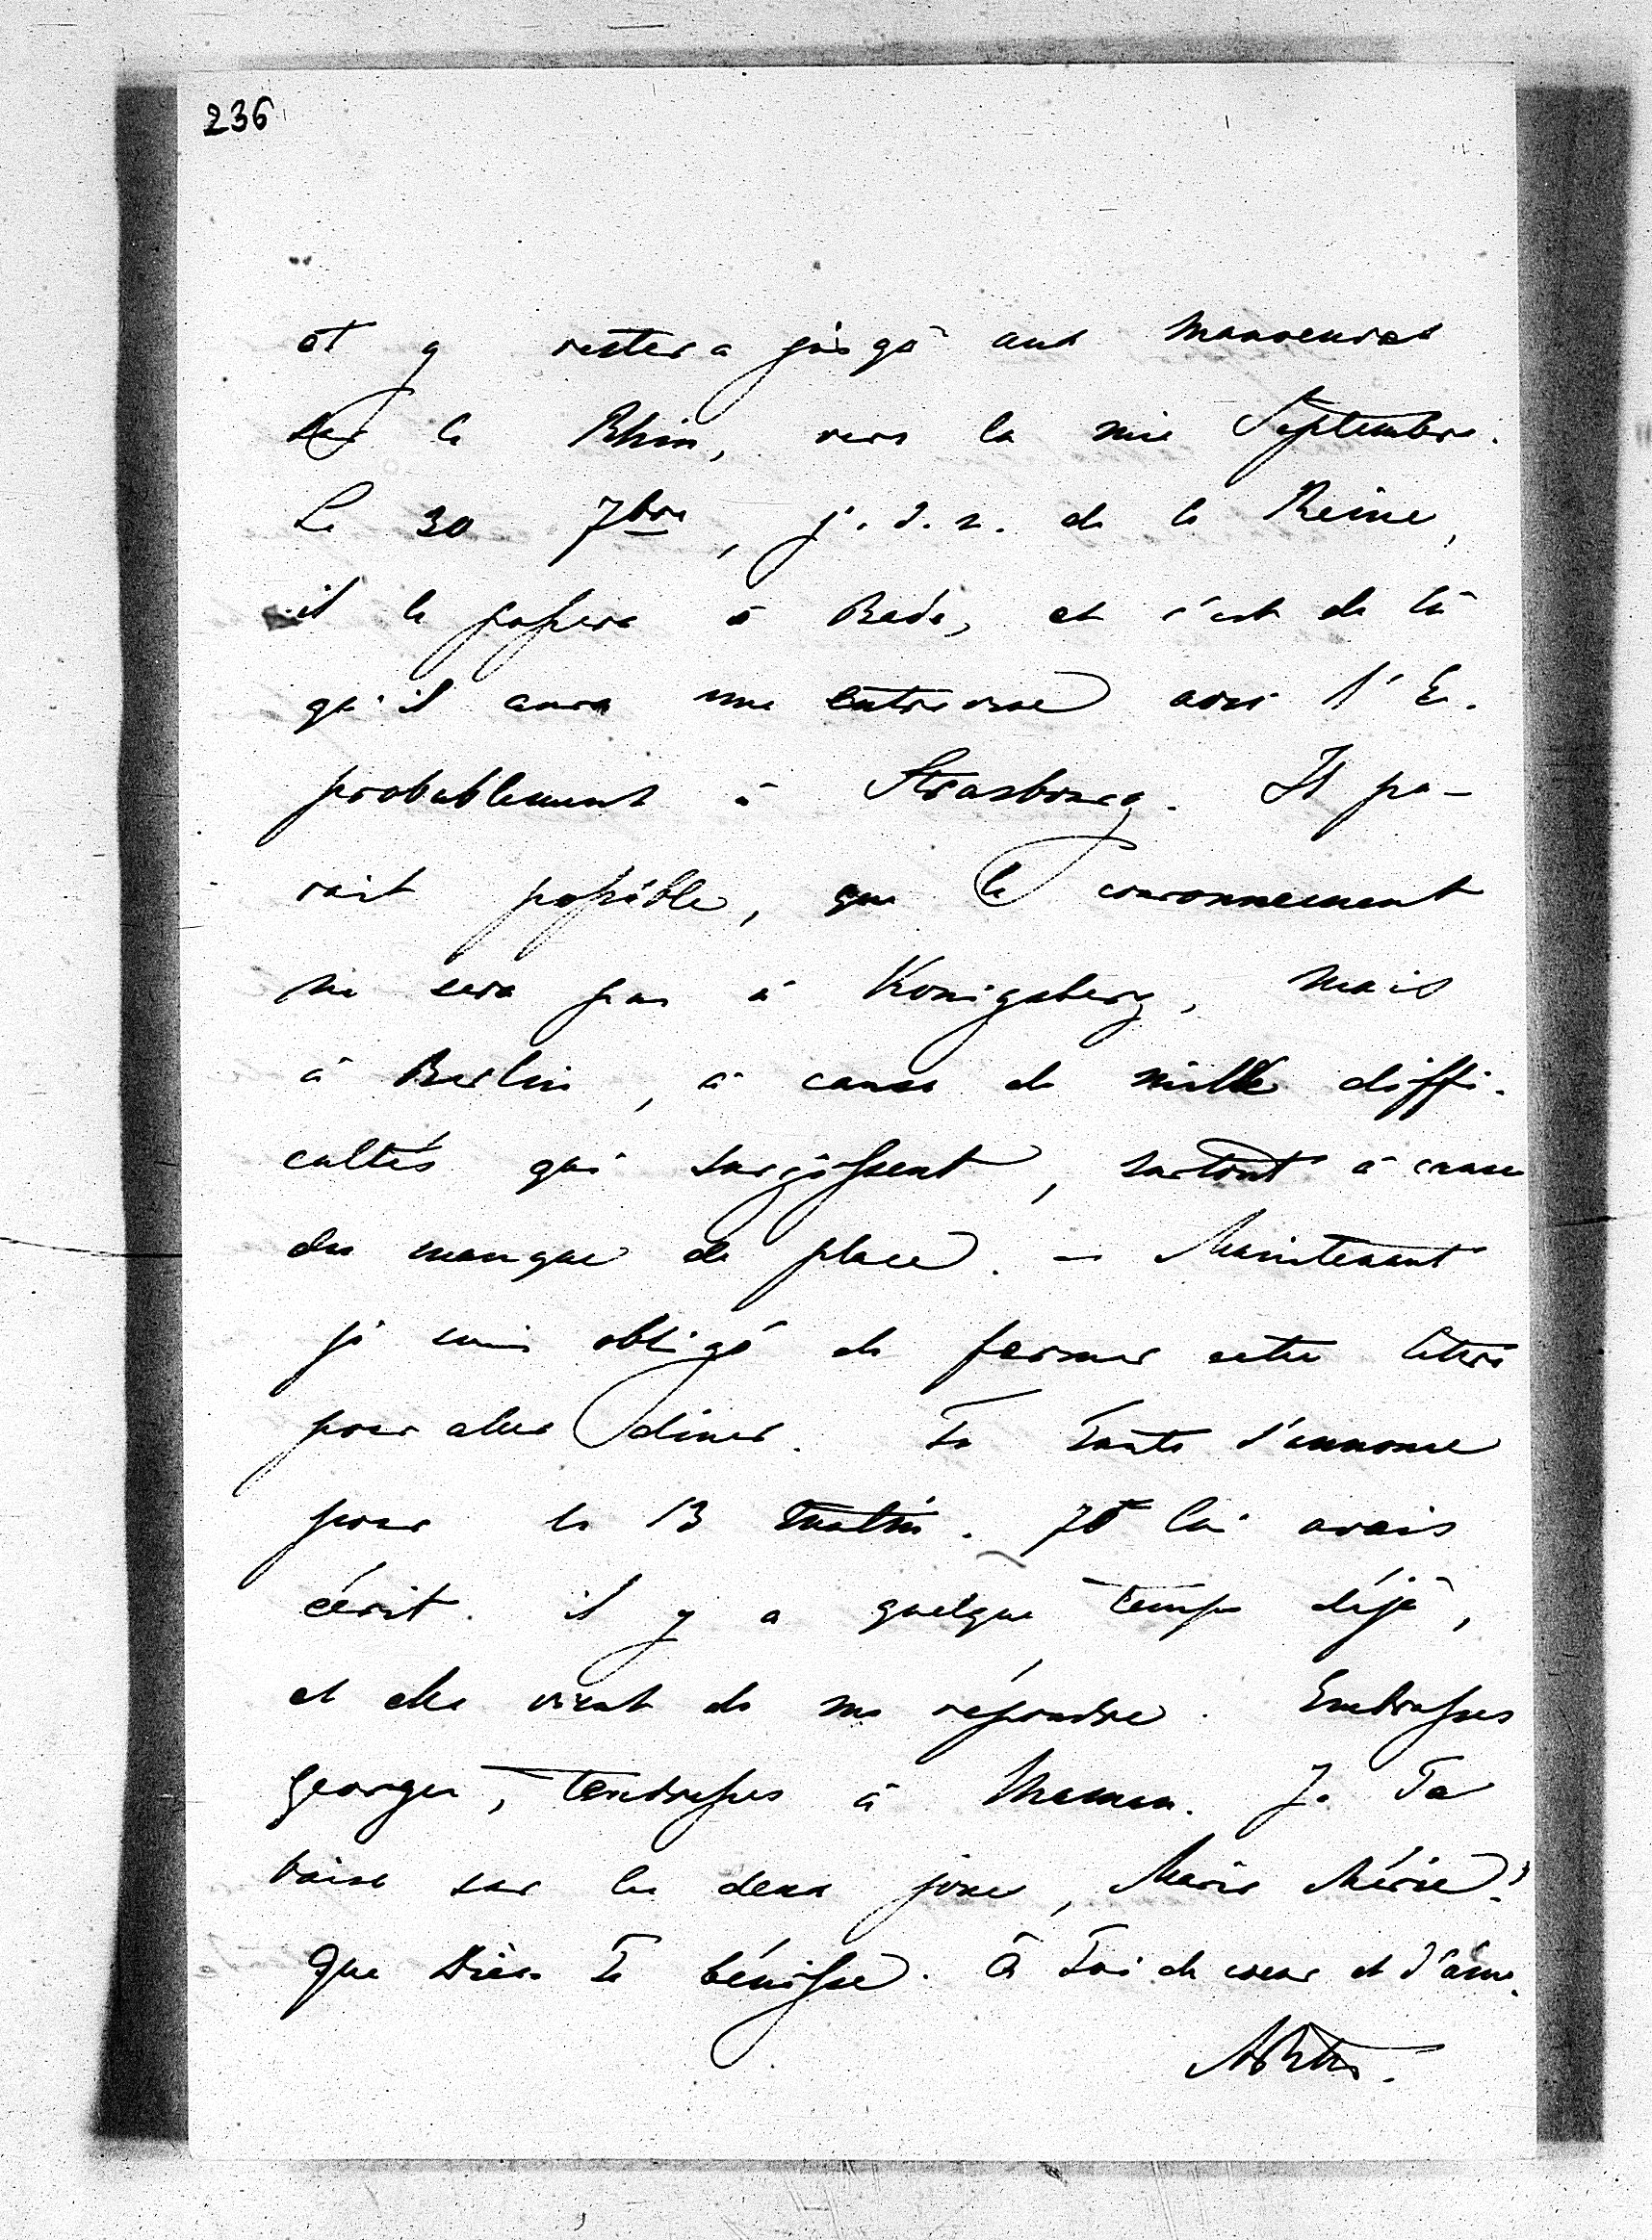 236
et y restera jusqu'à aux manoeuvres
sur le Rhin, vers la mie Septembre.
Le 30 7bre, j. d. n. de la Reine,
il le passera à Bade, et c'est de là
qu'il aura une entrevue avec l'E.
probablement à Strasbourg. Il pa-
rait possible, que le couronnement
ne sera pas à Konigsberg, mais
à Berlin, à cause de mille diffi-
cultés qui surgissent, surtout à cause
du manque de place. — Maintenant
je suis obligé de fermer cette lettre
pour aller dîner. Ta Tante s'annonce
pour le 13 matin. Je lui avais
écrit il y a quelque temps déjà,
et elle vient de me répondre. Embrasses
Georges, tendresses à Maman. Je Te
baise sur les deux joues, Marie
Que Dieu Te bénisse. à Toi de coeur et d'âme.